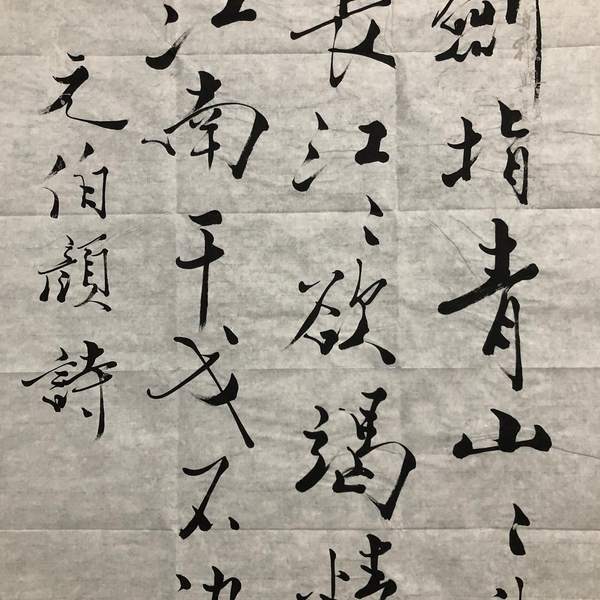 劍指青山〻
長江〻欲竭
江南干戈不
元伯顏詩